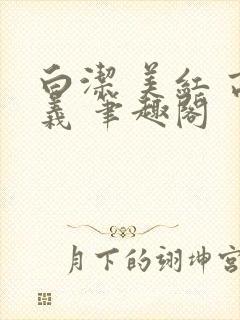 白潔 美紅 高
義 筆趣閣
月下的翊坤宮